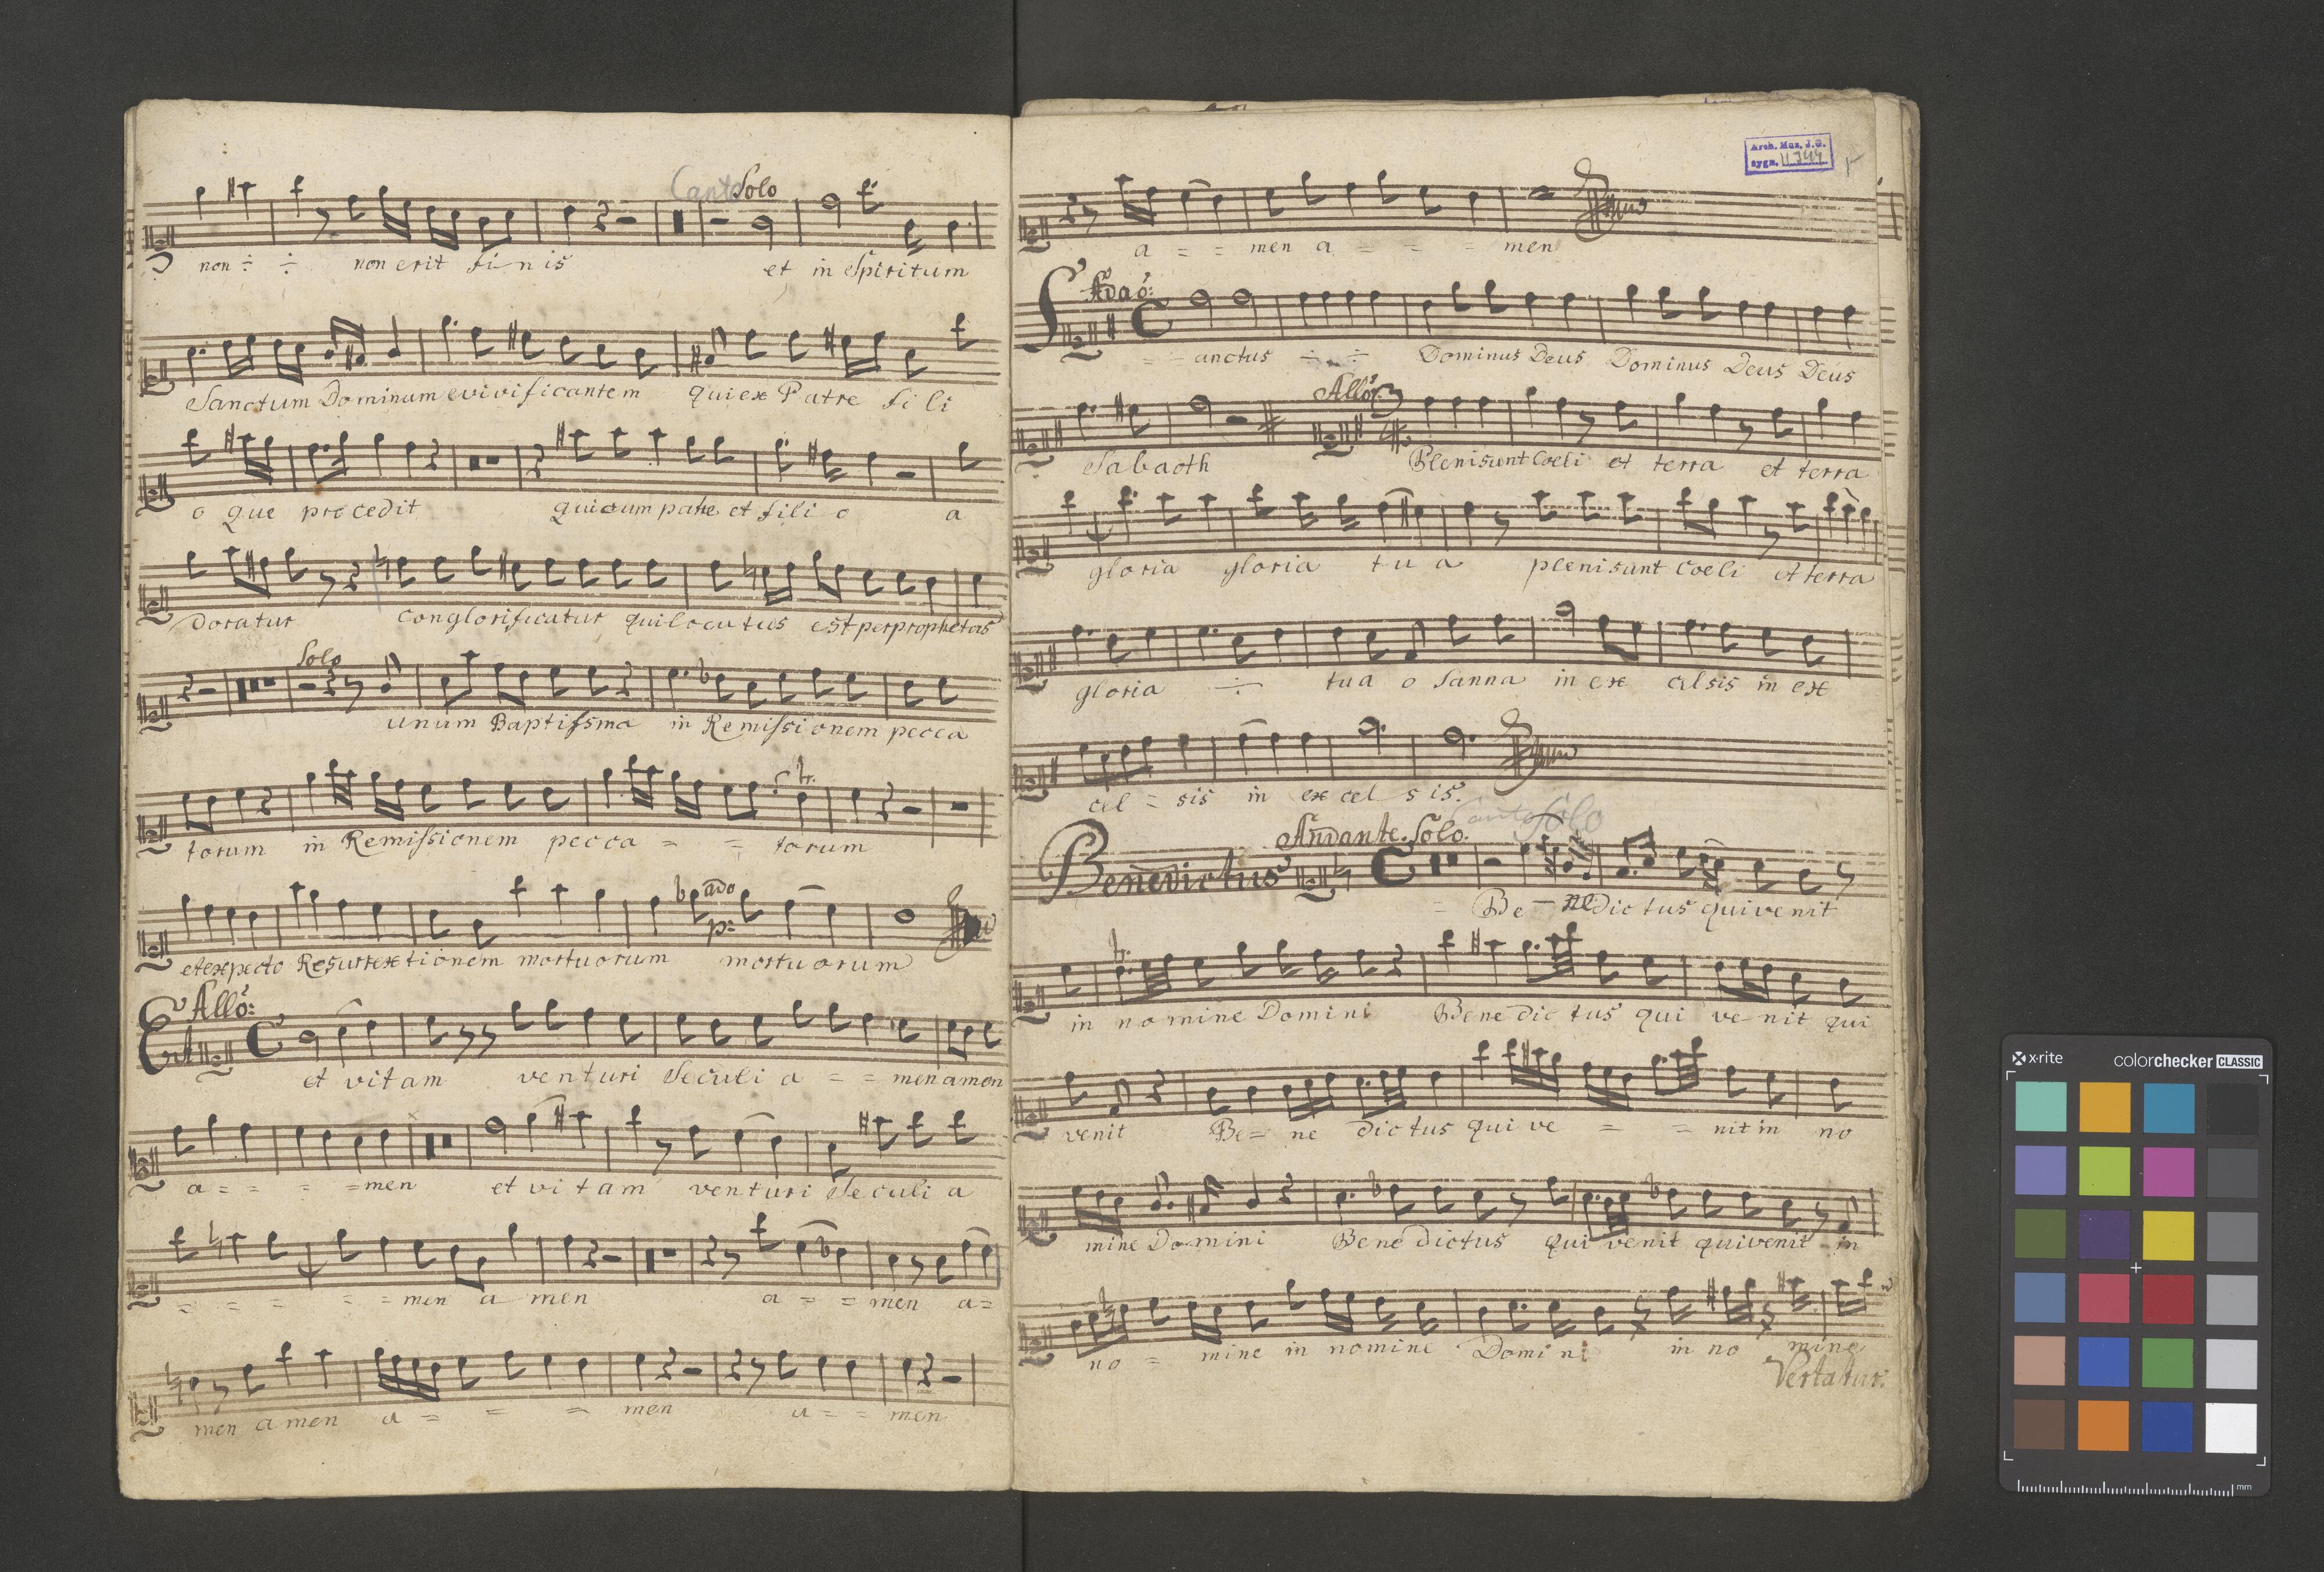 Canto Solo
non ÷ ÷ non erit finis et in Spiritum
Sanctum Dominum evivificantem qui ex Patre fili
o que procedit qui cum patre et filio a
doratur conglorificatur qui locutus est per prophetas
Solo
unum Baptissma in Remissionem pecca
torum in Remissionem pecca = = torum
tr.
ado
p:
et expecto Resurrextionem mortuorum mortuorum
Allo:
Et
et vitam venturi Seculi a = = men amen
a = = = = men et vitam venturi Seculi a
= = = = = men a men a = = men a =
men amen a = = = men a = = men
Arch. Muz. J.G.
sygn. II 344
a = = men a = = = men
Adaó:
S
= = anctus ÷ ÷ Dominus Deus Dominus Deus Deus
Alló: 3
Sabaoth Pleni sunt Coeli et terra et terra
gloria gloria tua pleni sunt Coeli et terra
gloria ÷ tua o Sanna in ex celsis in ex
cel = sis in ex cel sis.
Canto Solo
Andante. Solo.
Benedictus
= Be - ne dictus qui venit
tr.
in nomine Domini Bene dic tus qui ve nit qui
venit Be = ne dictus qui ve = = nit in no
mine Domini Bene dictus qui venit qui venit in
no = mine in nomine Domini in no mine
Vertatur:
x-rite
colorchecker CLASSIC
mm